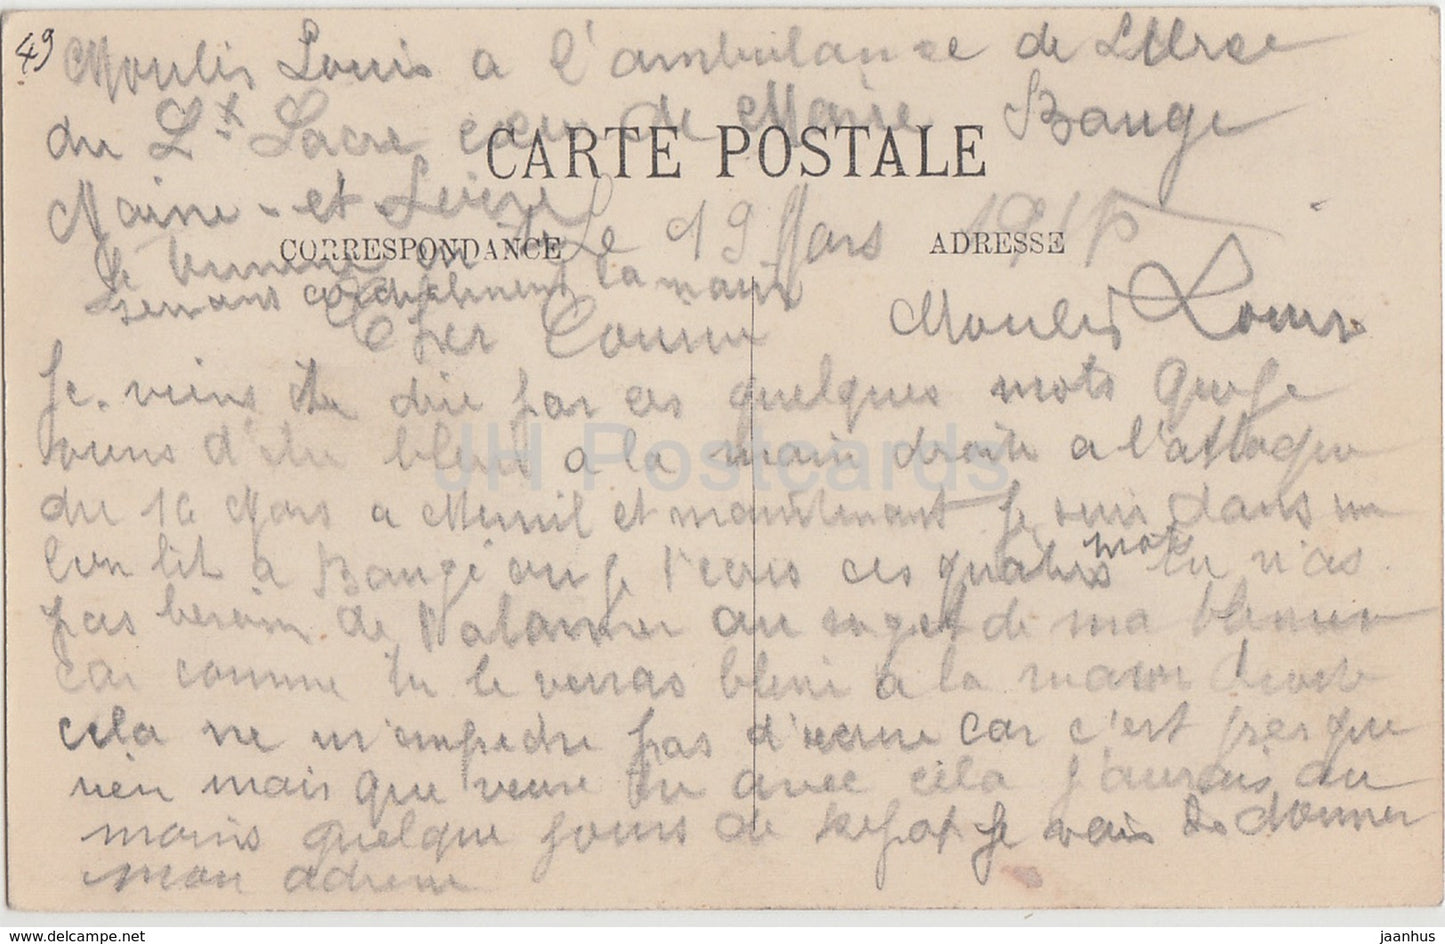 49
Moulis Louis a l'ambulance de
du St Sacre cœur de Marie Bauge
CARTE POSTALE
Maine-et-Loire
le 19 Mars 1915
CORRESPONDANCE ADRESSE
Je termine en
serrant cordialement la main
Moulis Louis
Cher Cousin
Je viens te dire par ces quelques mots que je
viens d'etre blessé a la main droite a l'attaque
du 16 Mars a Mesnil et maintenant je suis dans un
bon lit a Baugé ou je t'ecris ces quatres mots tu n'as
pas besoin de t'alarmer au sujet de ma blessure
car comme tu le verras blessé a la main droite
cela ne m'empedre pas d'ecrire car c'est presque
rien mais que veux tu avec cela j'aurais au
moins quelque jours de repot je vais te donner
mon adresse
JH Postcards
www.delcampe.net
jaanhus